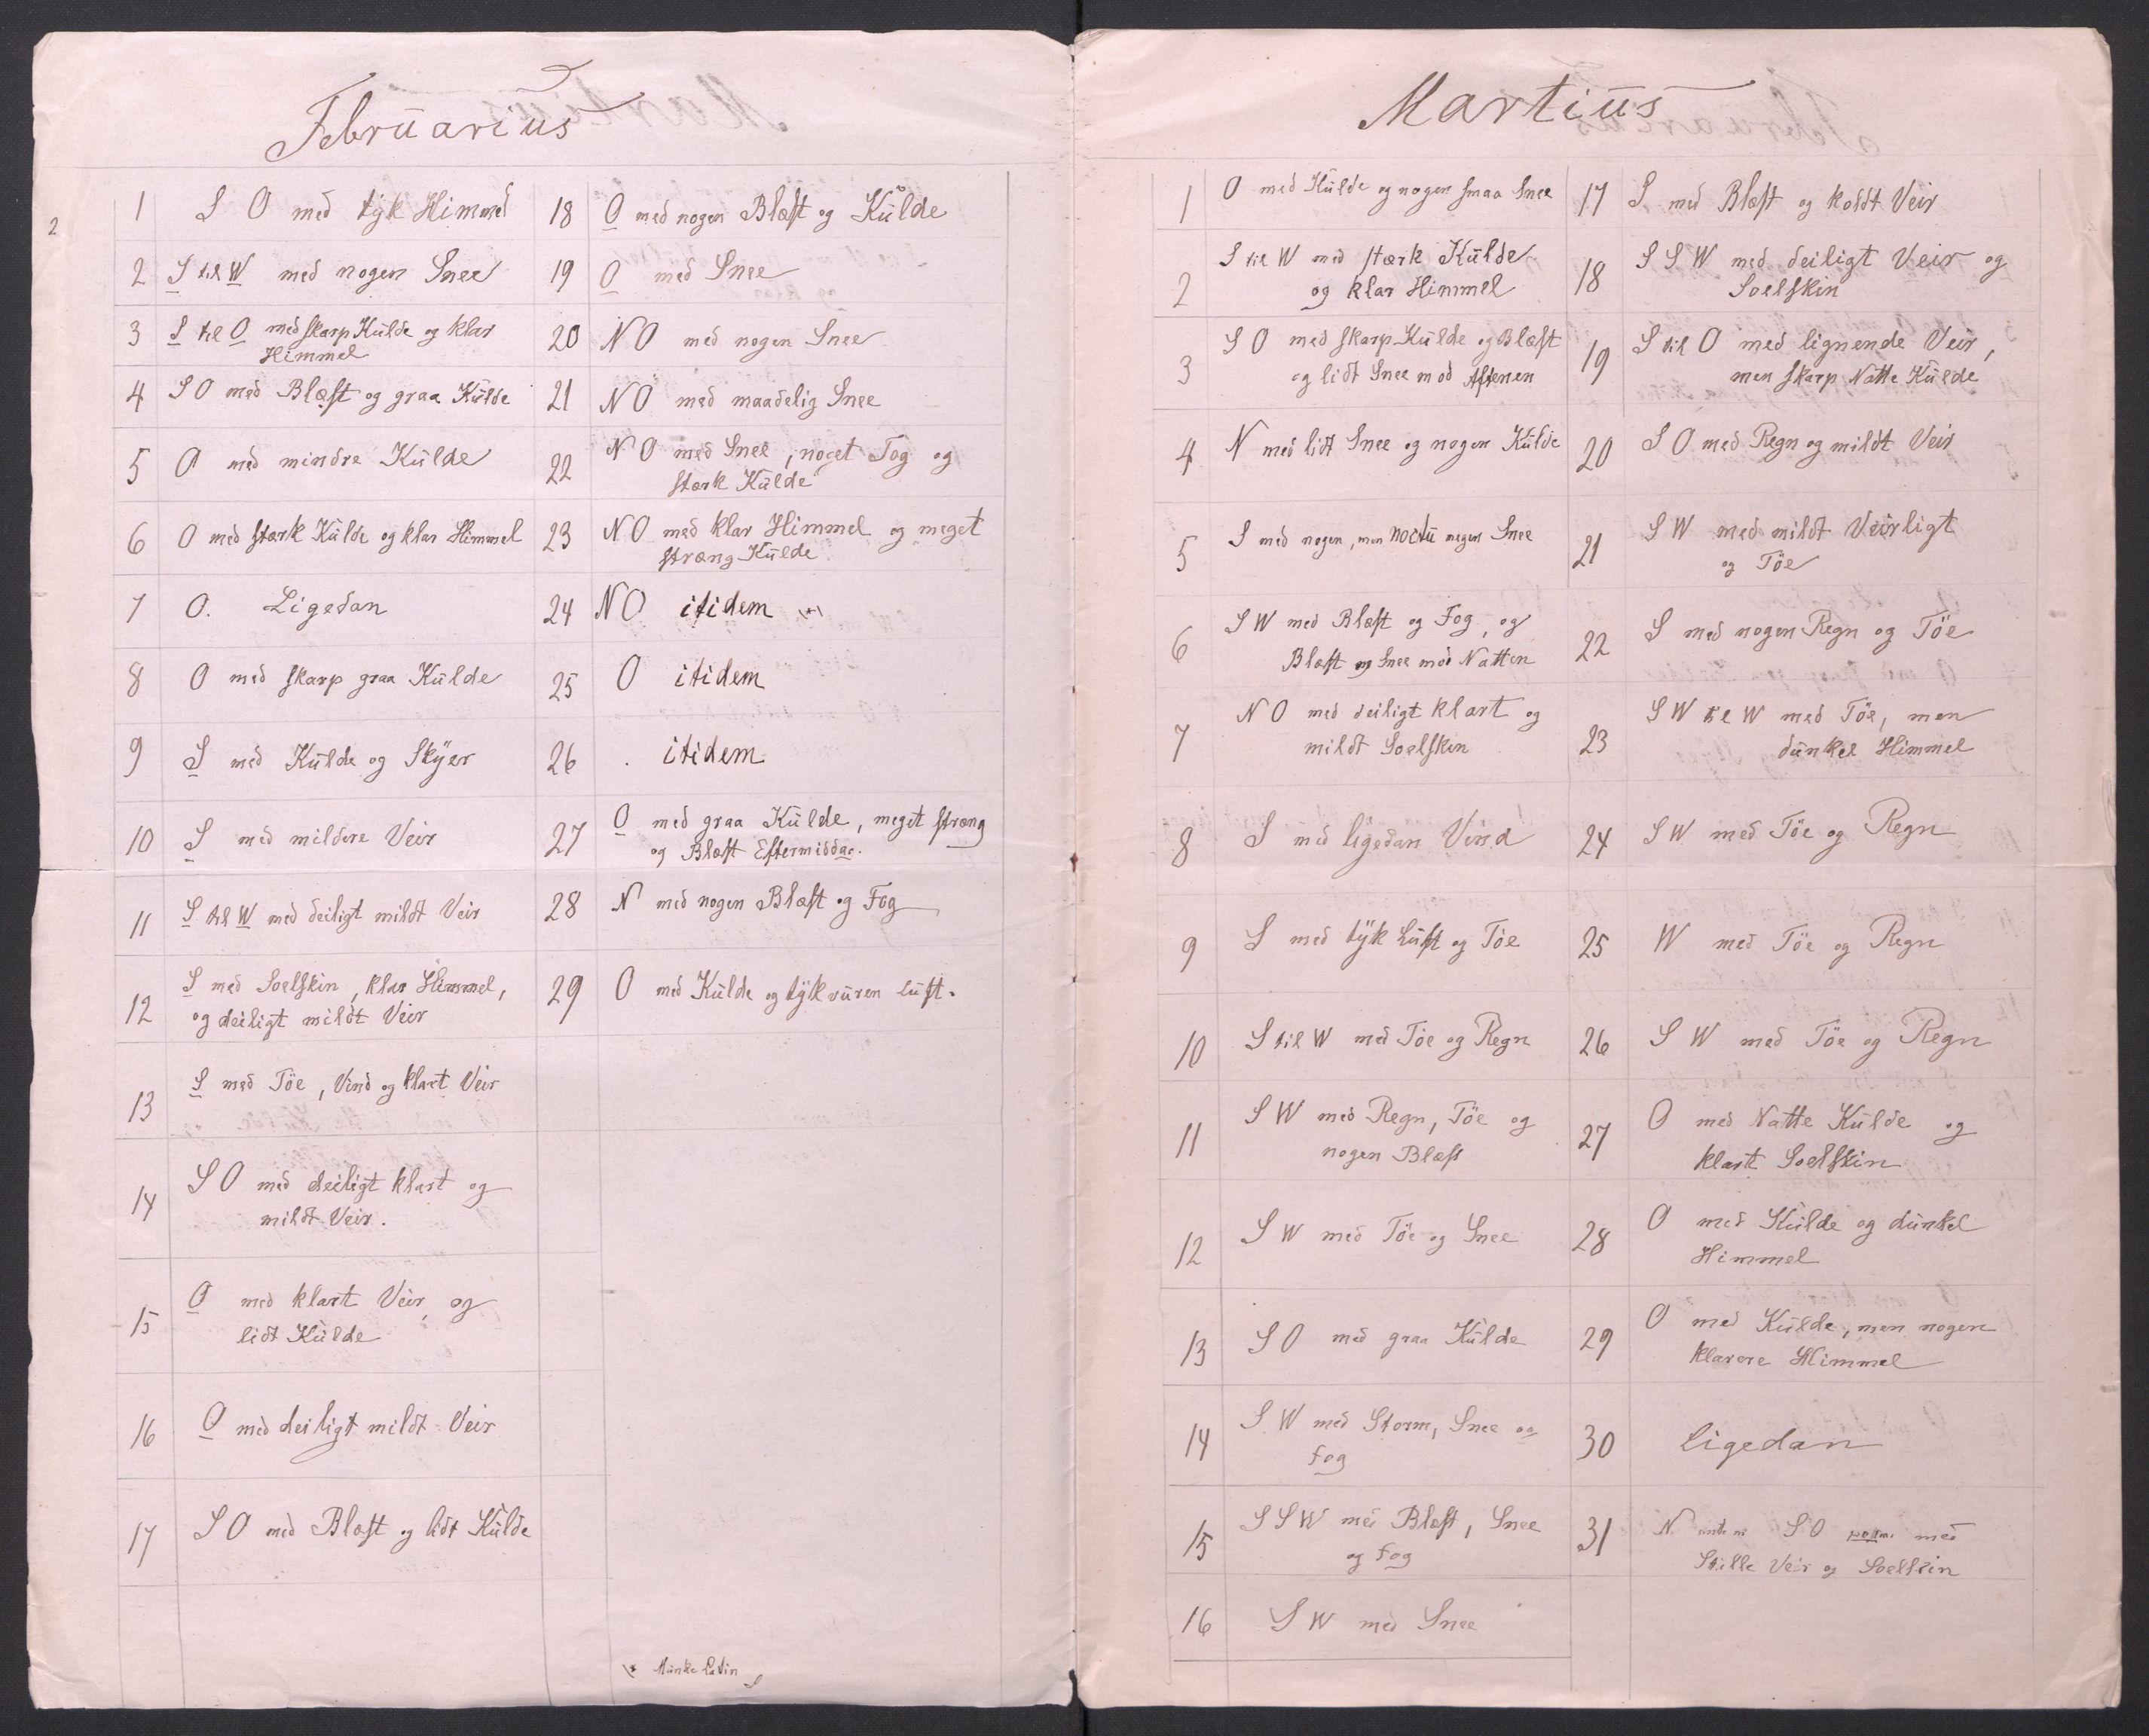 Februarius
2
1 S O med tyk Himmel
2 S til W med nogen Snee
3 S til O med skarp Kulde og klar
Himmel
4 S O med Blæst og graa Kulde
5 O med mindre Kulde
6 O med stærk Kulde og klar Himmel
7 O. Ligedan
8 O med skarp graa Kulde
9 S med Kulde og Skyer
10 S med mildere Veir
11 S til W med deiligt mildt Veir
12 S med Soelskin, klar Himmel,
og deiligt mildt Veir
13 S med Töe, Vind og klart Veir
14 S O med deiligt klart og
mildt Veir.
15 O med klart Veir, og
lidt Kulde
16 O med deiligt mildt Veir
17 S O med Blæst og lidt Kulde
18 O med nogen Blæst og Kulde
19 O med Snee
20 N O med nogen Snee
21 N O med maadelig Snee
22 N O med Snee, noget Fog og
stærk Kulde
23 N O med klar Himmel og meget
stræng Kulde
24 N O itidem (*)
25 O itidem
26 . itidem
27 O med graa Kulde, meget stræng
og Blæst Eftermiddag.
28 N med nogen Blæst og Fog
29 O med Kulde og tykvuren luft.
(* Munke Latin
Martius
1 O med Kulde og nogen smaa Snee
2 S til W med stærk Kulde
og klar Himmel
3 S O med skarp Kulde og Blæst
og lidt Snee mod Aftenen
4 N med lidt Snee og nogen Kulde
5 S med nogen, men noctu megen Snee
6 S W med Blæst og Fog, og
Blæst og Snee mod Natten
7 N O med deiligt klart og
mildt Soelskin
8 S med ligedan Vind
9 S med tyk Luft og Töe
10 S til W med Töe og Regn
11 S W med Regn, Töe og
nogen Blæst
12 S W med Töe og Snee
13 S O med graa Kulde
14 S W med Storm, Snee og
Fog
15 S S W med Blæst, Snee
og Fog
16 S W med Snee
17 S med Blæst og koldt Veir
18 S S W med deiligt Veir og
Soelskin
19 S til O med lignende Veir,
men skarp Natte Kulde
20 S O med Regn og mildt Veir
21 S W med mildt Veirligt
og Töe
22 S med nogen Regn og Töe
23 S W til W med Töe, men
dunkel Himmel
24 S W med Töe og Regn
25 W med Töe og Regn
26 S W med Töe og Regn
27 O med Natte Kulde og
klart Soelskin
28 O med Kulde og dunkel
Himmel
29 O med Kulde, men nogen
klarere Himmel
30 ligedan
31 N S O med
Stille Veir og Soelskin